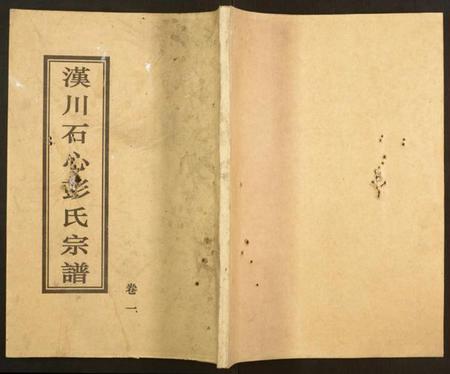 漢川石心彭氏宗譜
卷一